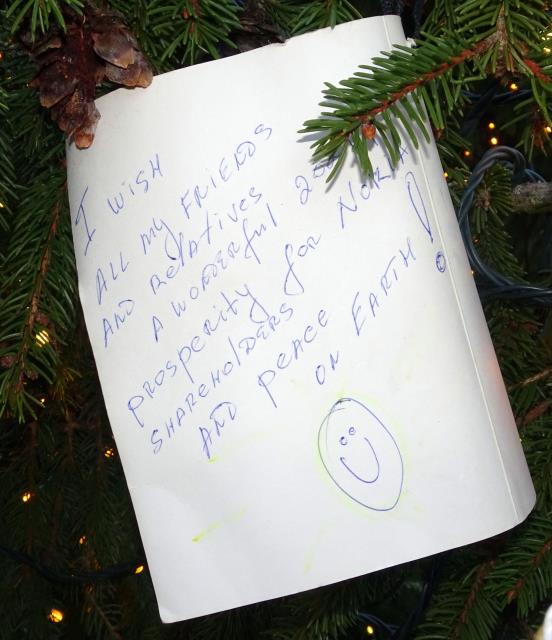 I WISH
ALL MY FRIENDS
AND RELATIVES
A WONDERFUL
PROSPERITY FOR NOKIA
SHAREHOLDERS
AND PEACE
ON EARTH!